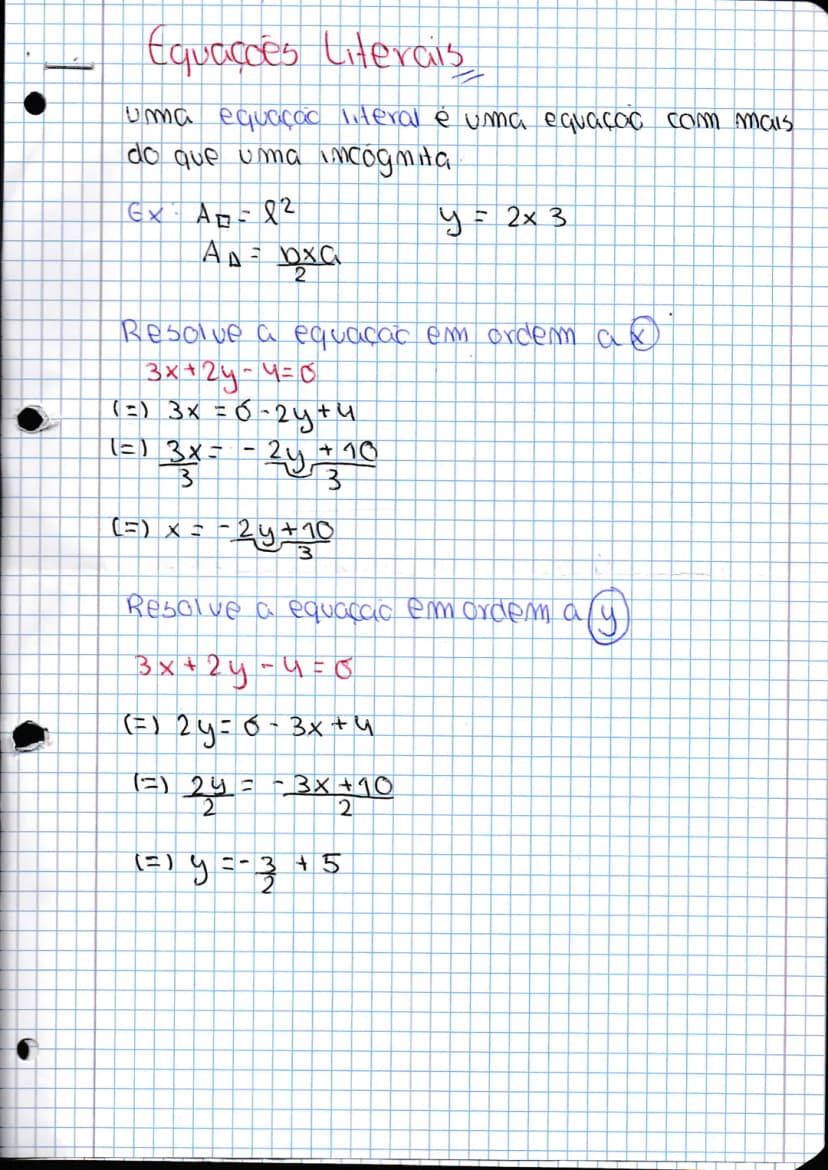 Equações Literais
Uma equação literal é uma equação com mais
do que uma incógnita
Ex: A□ = l²
y = 2x 3
A△ = bxa/2
Resolve a equação em ordem a x
3x+2y-4=6
(=) 3x = 6-2y+4
(=) 3x/3 = -2y+10/3
(=) x = -2y+10/3
Resolve a equação em ordem a y
3x+2y-4=6
(=) 2y=6-3x+4
(=) 2y/2 = -3x+10/2
(=) y = -3/2 + 5